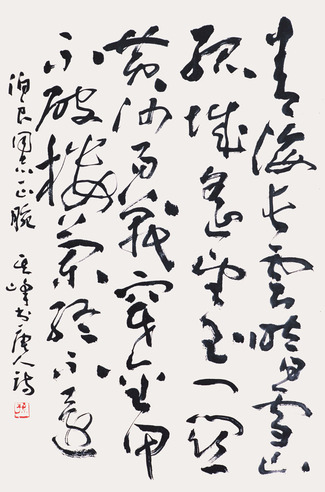 青海长雲暗雪山
孤城遥望玉门関
黄沙百戰穿金甲
不破楼蘭终不還
伯良同志正腕 其峰书唐人诗